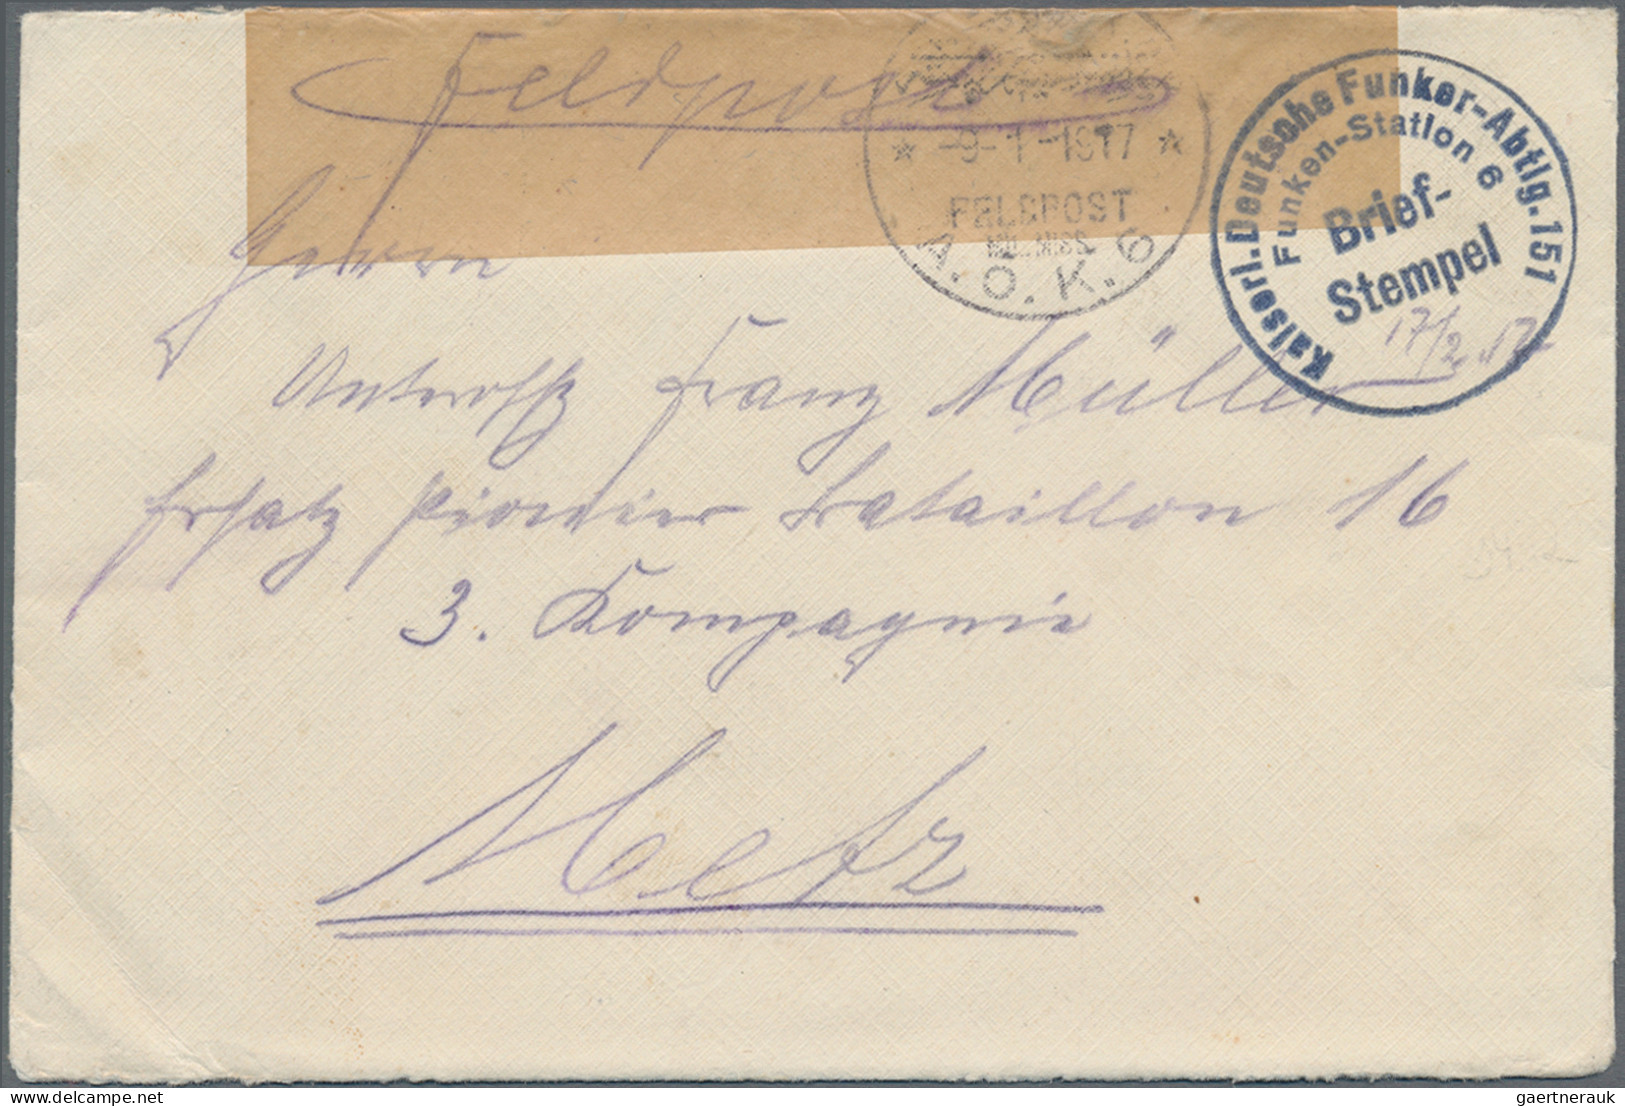 Feldpost
-9-1-1917
FELDPOST
A.O.K. 6
Kaiserl. Deutsche Funker-Abtlg. 151
Funken-Station 6
Brief-
Stempel
17/2 17
Herrn
Untroffz Franz Müller
Ersatz Pionier Bataillon 16
3. Kompagnie
Metz
gaertnerauk